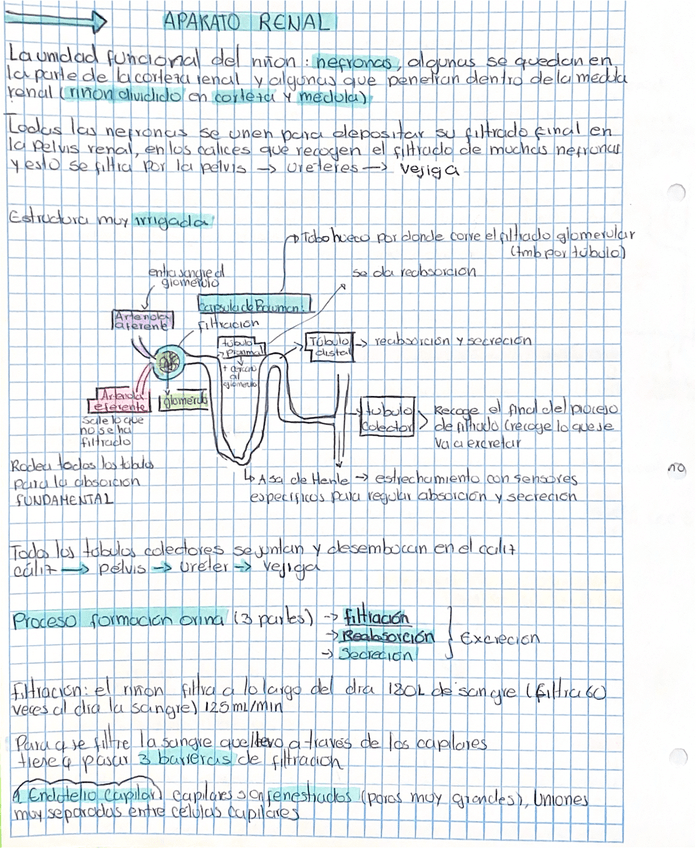 APARATO RENAL
La unidad funcional del riñon: nefronas, algunas se quedan en
la parte de la corteza renal y algunas que penetran dentro de la medula
renal (riñon dividido en corteza y medula)
Todas las nefronas se unen para depositar su filtrado final en
la pelvis renal, en los calices que recogen el filtrado de muchas nefronas
y esto se filtra por la pelvis → ureteres → vejiga
Estructura muy irrigada
Tubo hueco por donde corre el filtrado glomerular
(tmb por túbulo)
entra sangre al
glomerulo
se da reabsorcion
Capsula de Bowman:
Arteriola
aferente
Filtracion
túbulo
proximal
Túbulo
distal
→ reabsorcion y secreción
+ cercano
al
glomerulo
Arteriola
eferente
glomerulo
sale lo que
no se ha
filtrado
tubulo
colector
Recoge el final del proceso
de filtrado (recoge lo que se
va a excretar
Rodea todos los tubulos
para la absorcion
FUNDAMENTAL
↳ Asa de Henle → estrechamiento con sensores
especificos para regular absorción y secreción
Todos los túbulos colectores se juntan y desembocan en el caliz
caliz → pelvis → ureter → vejiga
Proceso formacion orina (3 partes) → filtración
→ Reabsorción } Excrecion
→ Secreción
Filtracion: el riñon filtra a lo largo del dia 180L de sangre (filtra 60
veces al dia la sangre) 125 ml/min
Para q se filtre la sangre que llevo a través de los capilares
tiene q pasar 3 barreras de filtracion
1 Endotelio capilar) capilares son fenestrados (poros muy grandes), Uniones
muy separadas entre células capilares